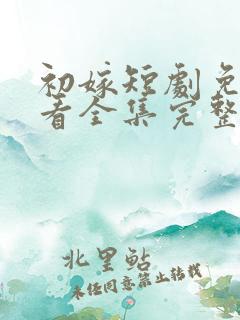 初嫁短劇免
看全集完整
北里鮎
未经同意禁止转载